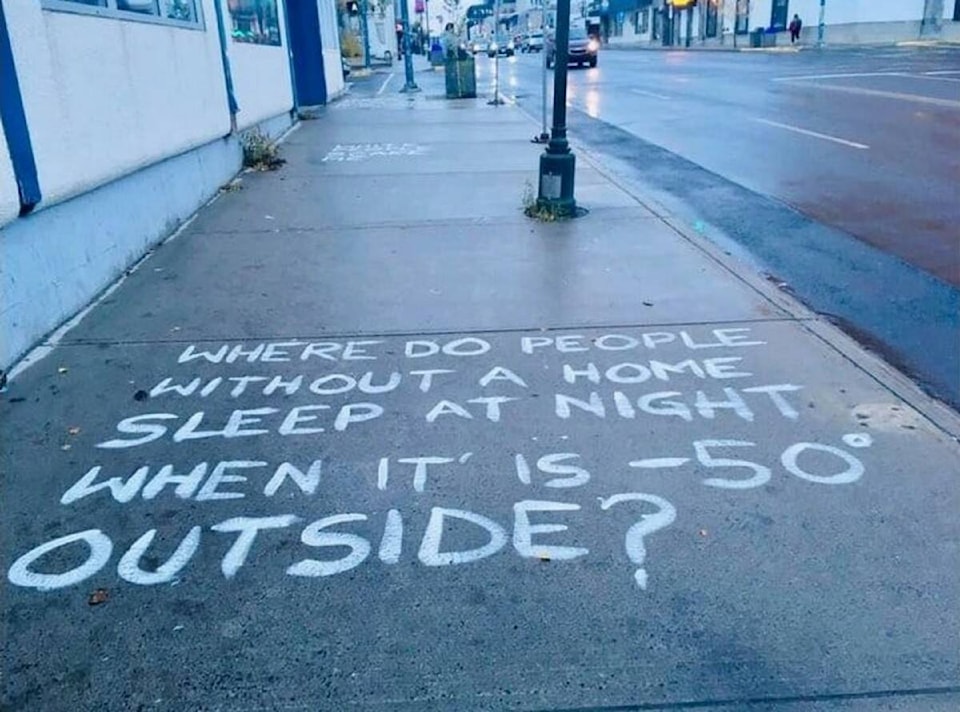 WHERE DO PEOPLE
WITHOUT A HOME
SLEEP AT NIGHT
WHEN IT IS -50°
OUTSIDE?